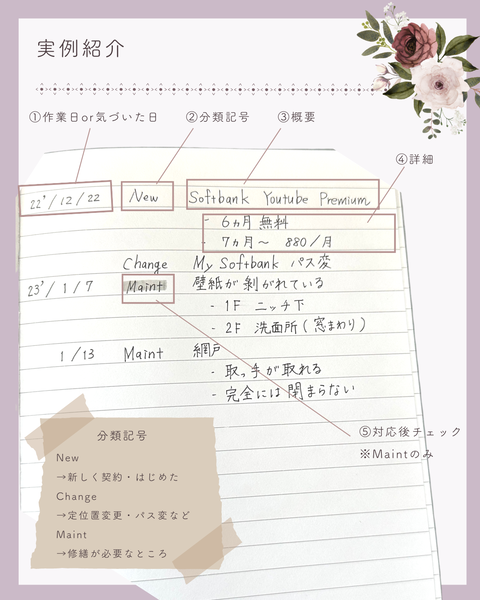 実例紹介
①作業日or気づいた日
②分類記号
③概要
④詳細
22'/12/22 New Softbank Youtube Premium
- 6ヵ月 無料
- 7ヵ月〜 880/月
Change My Softbank パス変
23'/1/7 Maint 壁紙が剥がれている
- 1F ニッチ下
- 2F 洗面所(窓まわり)
1/13 Maint 網戸
- 取っ手が取れる
- 完全には閉まらない
⑤対応後チェック
※Maintのみ
分類記号
New
→新しく契約・はじめた
Change
→定位置変更・パス変など
Maint
→修繕が必要なところ